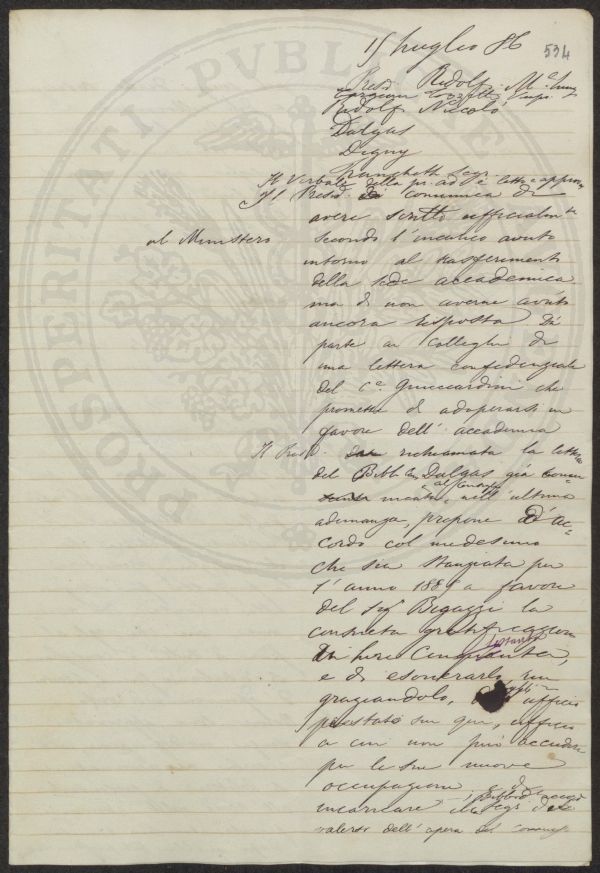 15 luglio 86
534
Presid. Ridolfi
Ridolfi Niccolò
Dalgas
Digny
Franchetti Segr.
Il Verbale della pr. ad. è letto e approv
Il Presid. comunica di
avere scritto ufficialmte
al Ministero
secondo l'incarico avuto
intorno al trasferimento
della sede accademica
ma di non averne avuto
ancora risposta Dà
parte ai colleghi di
una lettera confidenziale
del Ce. Guicciardini che
promette di adoperarsi in
favore dell'accademia
Il Presid. richiamata la lettera
del Biblio Dalgas già
nell'ultima
adunanza, propone d'ac=
cordo col medesimo
che sia stanziata per
l'anno 188 a favore
del Sig Bigazzi la
consueta gratificazione
di lire Cinquanta,
e di esonerarlo, rin
graziandolo, ufficio
prestato sin qui, ufficio
a cui non può accudire
per le sue nuove
occupazioni e di
incaricare
valersi dell'opera del